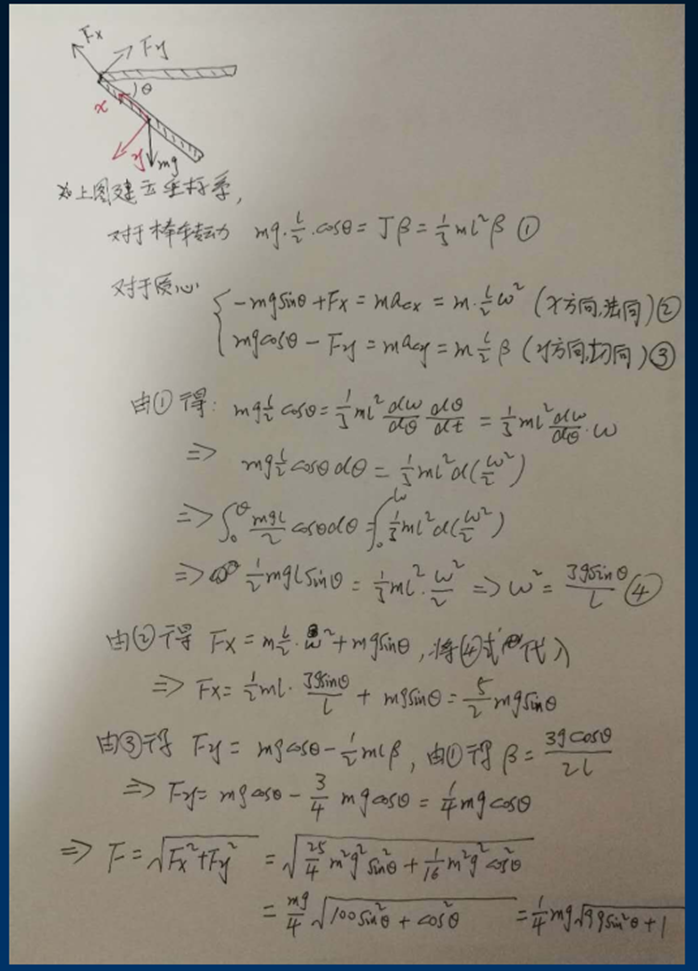 Fx Fy
θ
x
y mg
如上图建立坐标系,
对于棒转动 mg·l/2·cosθ = Jβ = 1/3 ml²β ①
对于质心
-mgsinθ + Fx = macx = m·l/2 ω² (x方向,法向) ②
mgcosθ - Fy = macy = m l/2 β (y方向,切向) ③
由①得: mg l/2 cosθ = 1/3 ml² dω/dθ dθ/dt = 1/3 ml² dω/dθ · ω
=> mg l/2 cosθdθ = 1/3 ml² d(ω²/2)
=> ∫₀^θ mgl/2 cosθdθ = ∫₀^ω 1/3 ml² d(ω²/2)
=> 1/2 mglsinθ = 1/3 ml² · ω²/2 => ω² = 3gsinθ/l ④
由②得 Fx = m l/2 · ω² + mgsinθ, 将④式代入
=> Fx = 1/2 ml · 3gsinθ/l + mgsinθ = 5/2 mgsinθ
由③得 Fy = mgcosθ - 1/2 mlβ, 由①得 β = 3gcosθ/2l
=> Fy = mgcosθ - 3/4 mgcosθ = 1/4 mgcosθ
=> F = √(Fx² + Fy²) = √(25/4 m²g²sin²θ + 1/16 m²g²cos²θ)
= mg/4 √(100sin²θ + cos²θ) = 1/4 mg√(99sin²θ + 1)